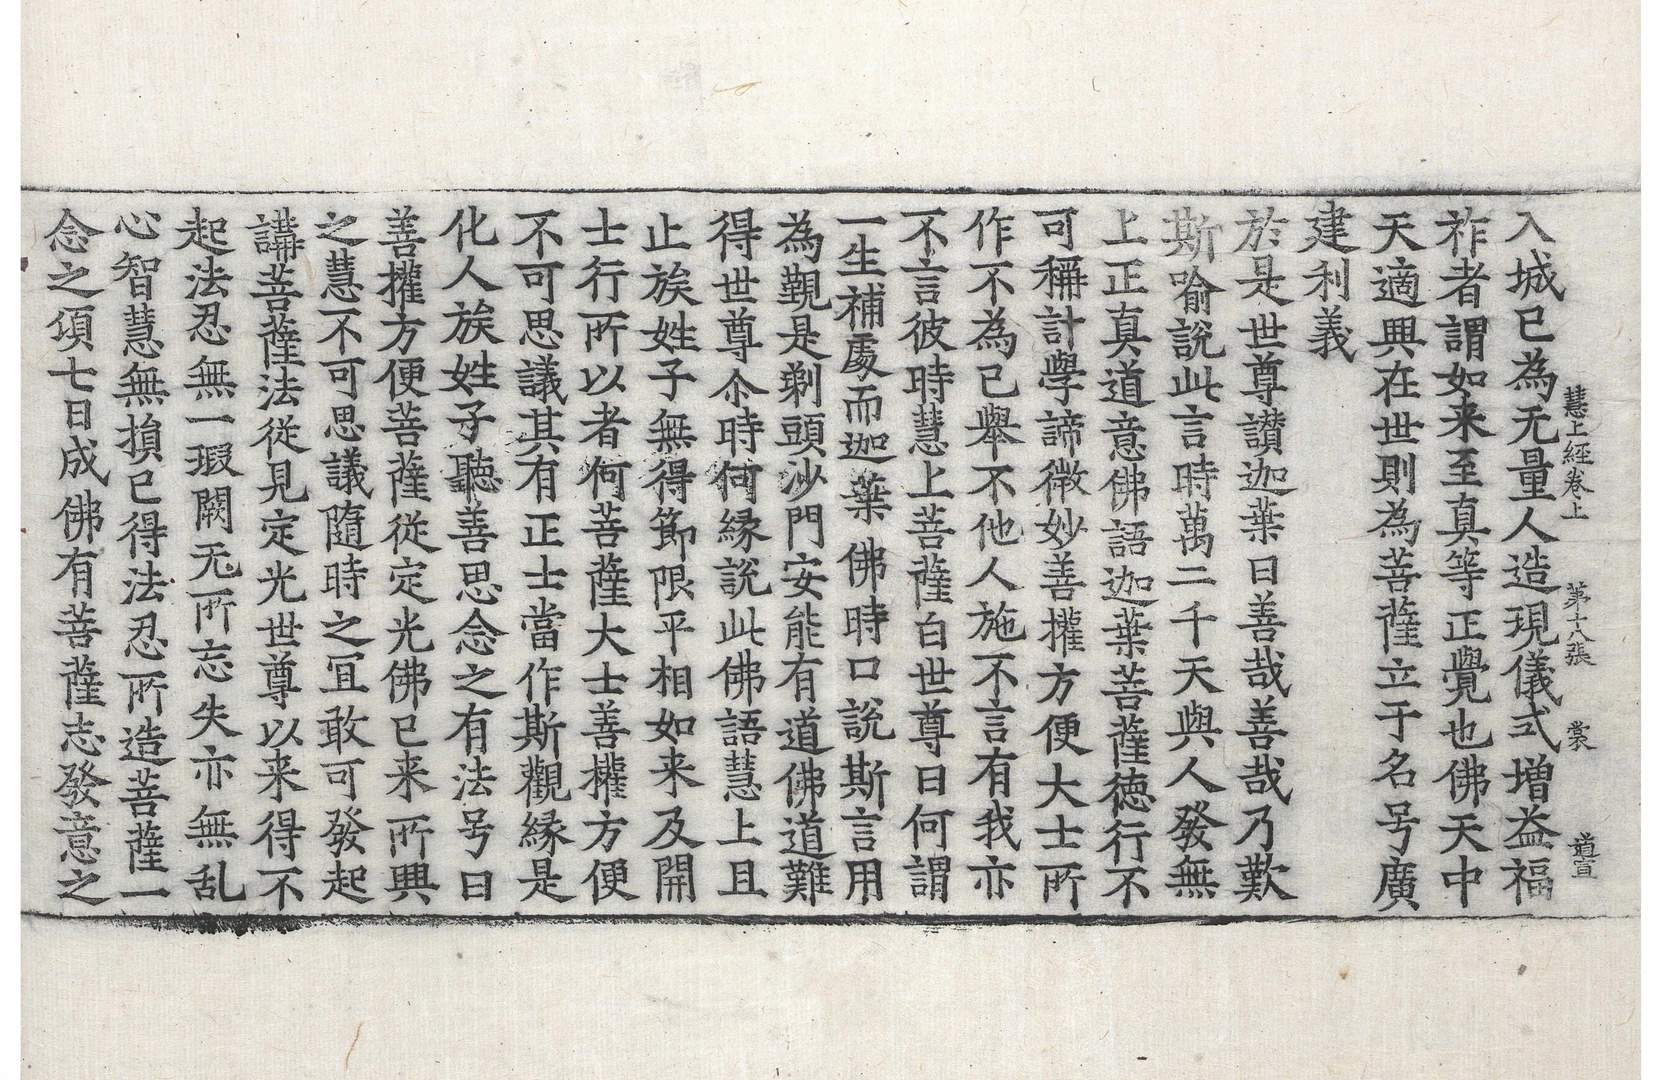 慧上經卷上 第十八張 裳 道宣
入城已為无量人造現儀式增益福
祚者謂如来至真等正覺也佛天中
天適興在世則為菩薩立于名号廣
建利義
於是世尊讚迦葉曰善哉善哉乃歎
斯喻說此言時萬二千天與人發無
上正真道意佛語迦葉菩薩德行不
可稱計學諦微妙善權方便大士所
作不為己舉不他人施不言有我亦
不言彼時慧上菩薩白世尊曰何謂
一生補處而迦葉佛時口說斯言用
為覲是剃頭沙門安能有道佛道難
得世尊尒時何緣說此佛語慧上且
止族姓子無得節限平相如来及開
士行所以者何菩薩大士善權方便
不可思議其有正士當作斯觀緣是
化人族姓子聽善思念之有法号曰
善權方便菩薩從定光佛已来所興
之慧不可思議隨時之宜敢可發起
講菩薩法從見定光世尊以来得不
起法忍無一瑕闕无所忘失亦無乱
心智慧無損已得法忍所造菩薩一
念之頃七日成佛有菩薩志發意之